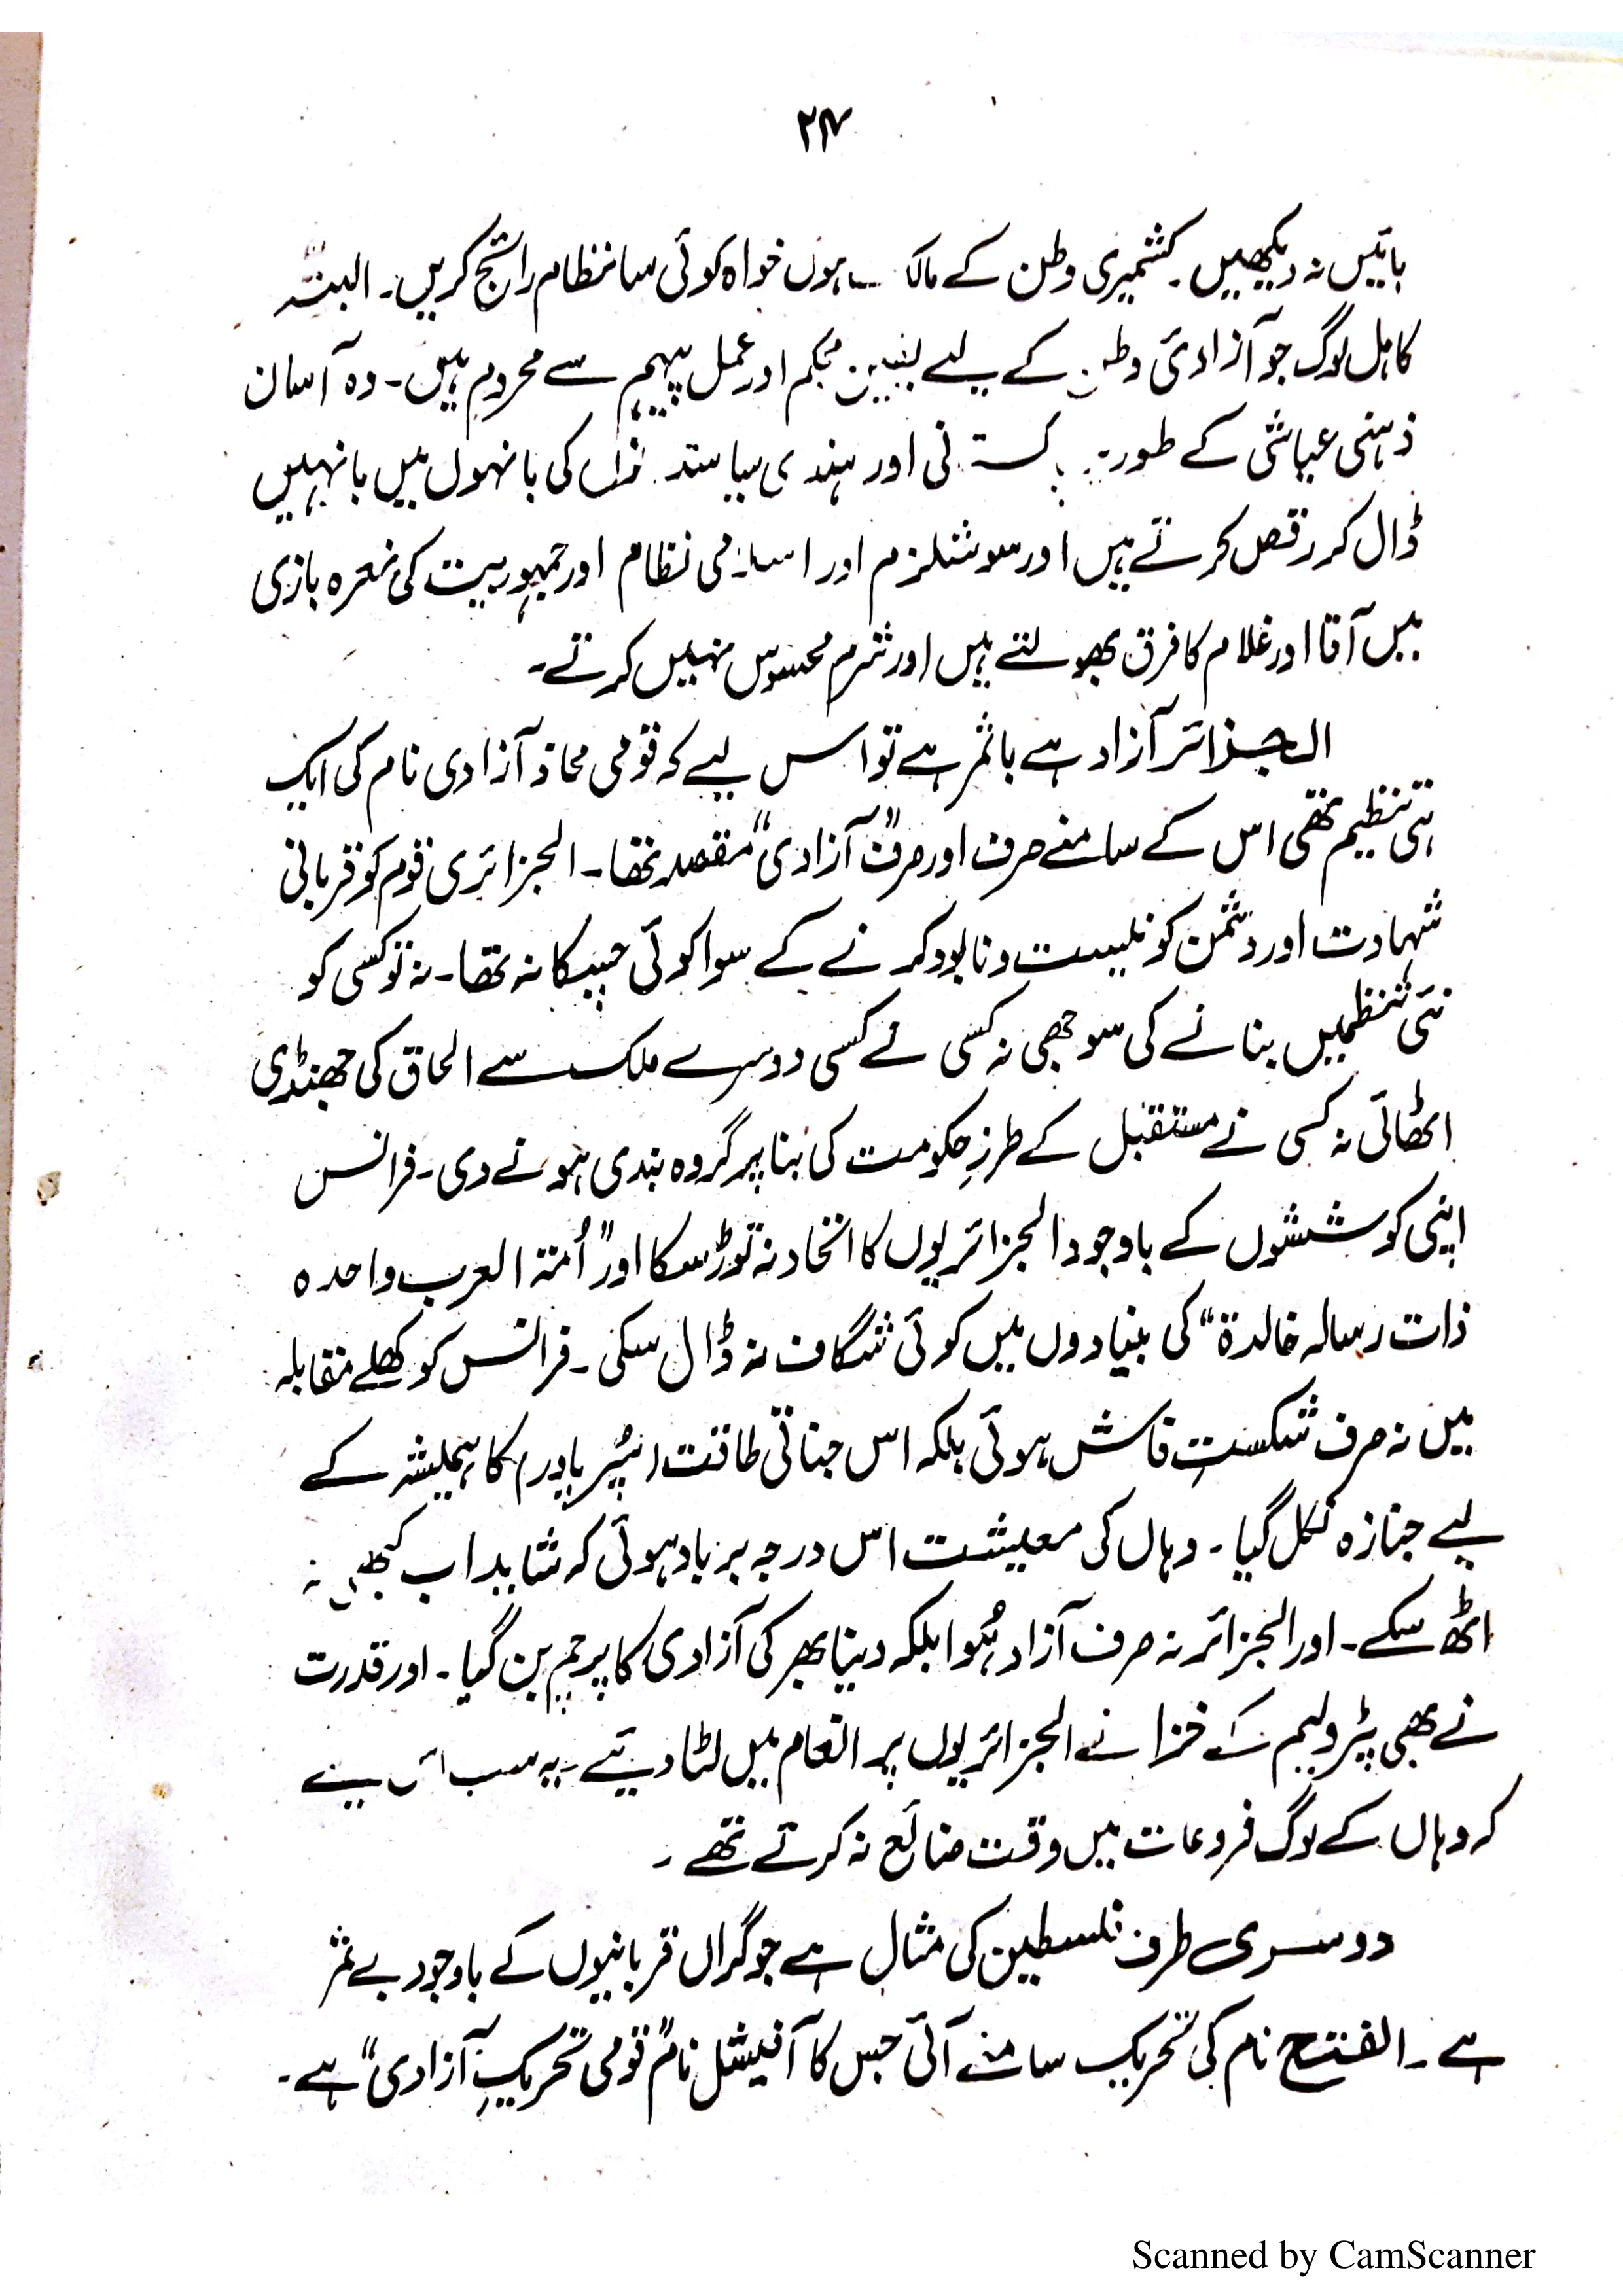 ۲۴
باتیں نہ دیکھیں۔ کشمیری وطن کے مالک ہوں خواہ کوئی سا نظام رائج کریں۔ البتہ
کاہل لوگ جو آزادئ وطن کے لیے یقین محکم اور عمل پیہم سے محروم ہیں۔ وہ آسان
ذہنی عیاشی کے طور پر پاکستانی اور ہندی سیاستدانوں کی بانہوں میں بانہیں
ڈال کر رقص کرتے ہیں اور سوشلزم اور اسلامی نظام اور جمہوریت کی نعرہ بازی
میں آقا اور غلام کا فرق بھولتے ہیں اور شرم محسوس نہیں کرتے۔
الجزائر آزاد ہے باثمر ہے تو اس لیے کہ قومی محاذ آزادی نام کی ایک
ہی تنظیم تھی اس کے سامنے صرف اور صرف "آزادی" مقصد تھا۔ الجزائری قوم کو قربانی
شہادت اور دشمن کو نیست و نابود کرنے کے سوا کوئی چسکا نہ تھا۔ نہ تو کسی کو
نئی تنظیمیں بنانے کی سوجھی نہ کسی نے کسی دوسرے ملک سے الحاق کی جھنڈی
اٹھائی نہ کسی نے مستقبل کے طرزِ حکومت کی بنا پر گروہ بندی ہونے دی۔ فرانس
اپنی کوششوں کے باوجود الجزائریوں کا اتحاد نہ توڑ سکا اور "اُمتہ العرب واحدہ
ذات رسالہ خالدۃ" کی بنیادوں میں کوئی شگاف نہ ڈال سکی۔ فرانس کو کھلے مقابلہ
میں نہ صرف شکستِ فاش ہوئی بلکہ اس جناتی طاقت (سُپر پاور) کا ہمیشہ کے
لیے جنازہ نکل گیا۔ وہاں کی معیشت اس درجہ برباد ہوئی کہ شاید اب کبھی نہ
اٹھ سکے۔ اور الجزائر نہ صرف آزاد ہُوا بلکہ دنیا بھر کی آزادی کا پرچم بن گیا۔ اور قدرت
نے بھی پٹرولیم کے خزانے الجزائریوں پر انعام میں لٹا دیئے۔ یہ سب اس لیے
کہ وہاں کے لوگ فروعات میں وقت ضائع نہ کرتے تھے۔
دوسری طرف فلسطین کی مثال ہے جو گراں قربانیوں کے باوجود بے ثمر
ہے۔ الفتح نام کی تحریک سامنے آئی جس کا آفیشل نام "قومی تحریکِ آزادی" ہے۔
Scanned by CamScanner